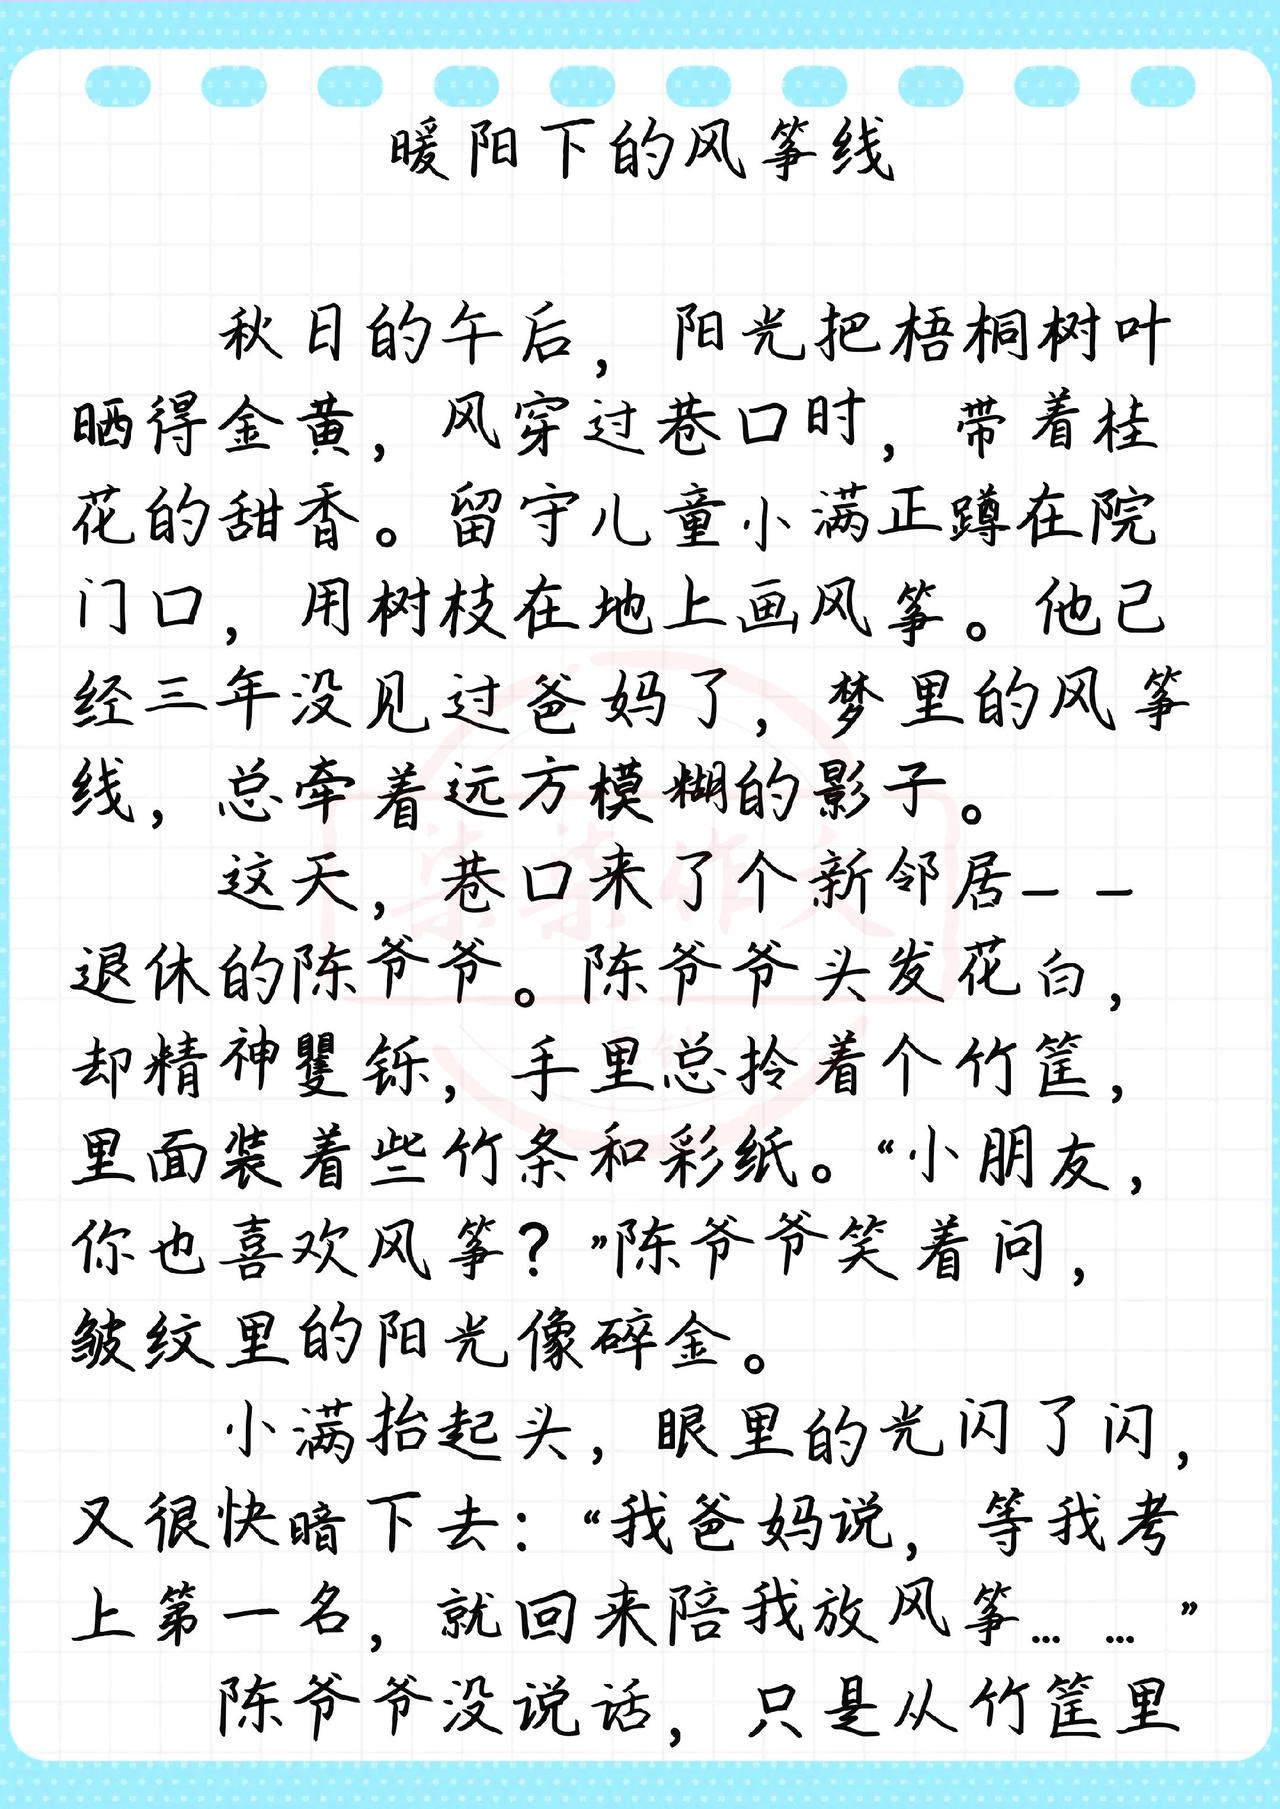 暖阳下的风筝线
秋日的午后，阳光把梧桐树叶
晒得金黄，风穿过巷口时，带着桂
花的甜香。留守儿童小满正蹲在院
门口，用树枝在地上画风筝。他已
经三年没见过爸妈了，梦里的风筝
线，总牵着远方模糊的影子。
这天，巷口来了个新邻居——
退休的陈爷爷。陈爷爷头发花白，
却精神矍铄，手里总拎着个竹筐，
里面装着些竹条和彩纸。“小朋友，
你也喜欢风筝？”陈爷爷笑着问，
皱纹里的阳光像碎金。
小满抬起头，眼里的光闪了闪，
又很快暗下去：“我爸妈说，等我考
上第一名，就回来陪我放风筝……”
陈爷爷没说话，只是从竹筐里